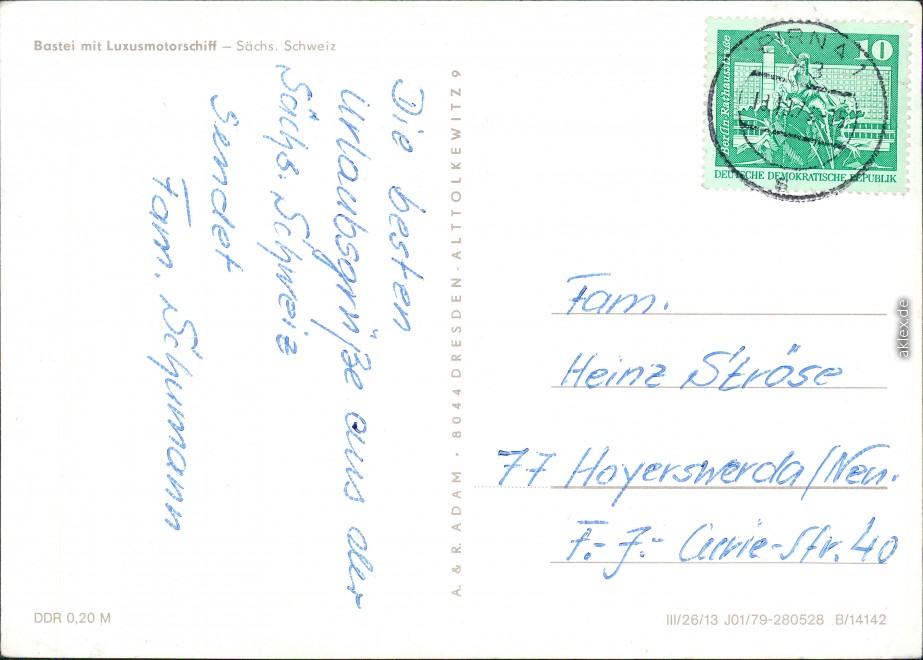 Bastei mit Luxusmotorschiff – Sächs. Schweiz
Die besten
Urlaubsgrüße aus der
Sächs. Schweiz
sendet
Fam. Schumann
A. & R. ADAM · 8044 DRESDEN - ALTTOLKEWITZ 9
10
Berlin, Rathausstraße
DEUTSCHE DEMOKRATISCHE REPUBLIK
PIRNA 1
Fam.
Heinz Ströse
77 Hoyerswerda/Neu.
F.-J.- Curie-Str. 40
DDR 0,20 M
III/26/13 J01/79-280528 B/14142
aklex.de